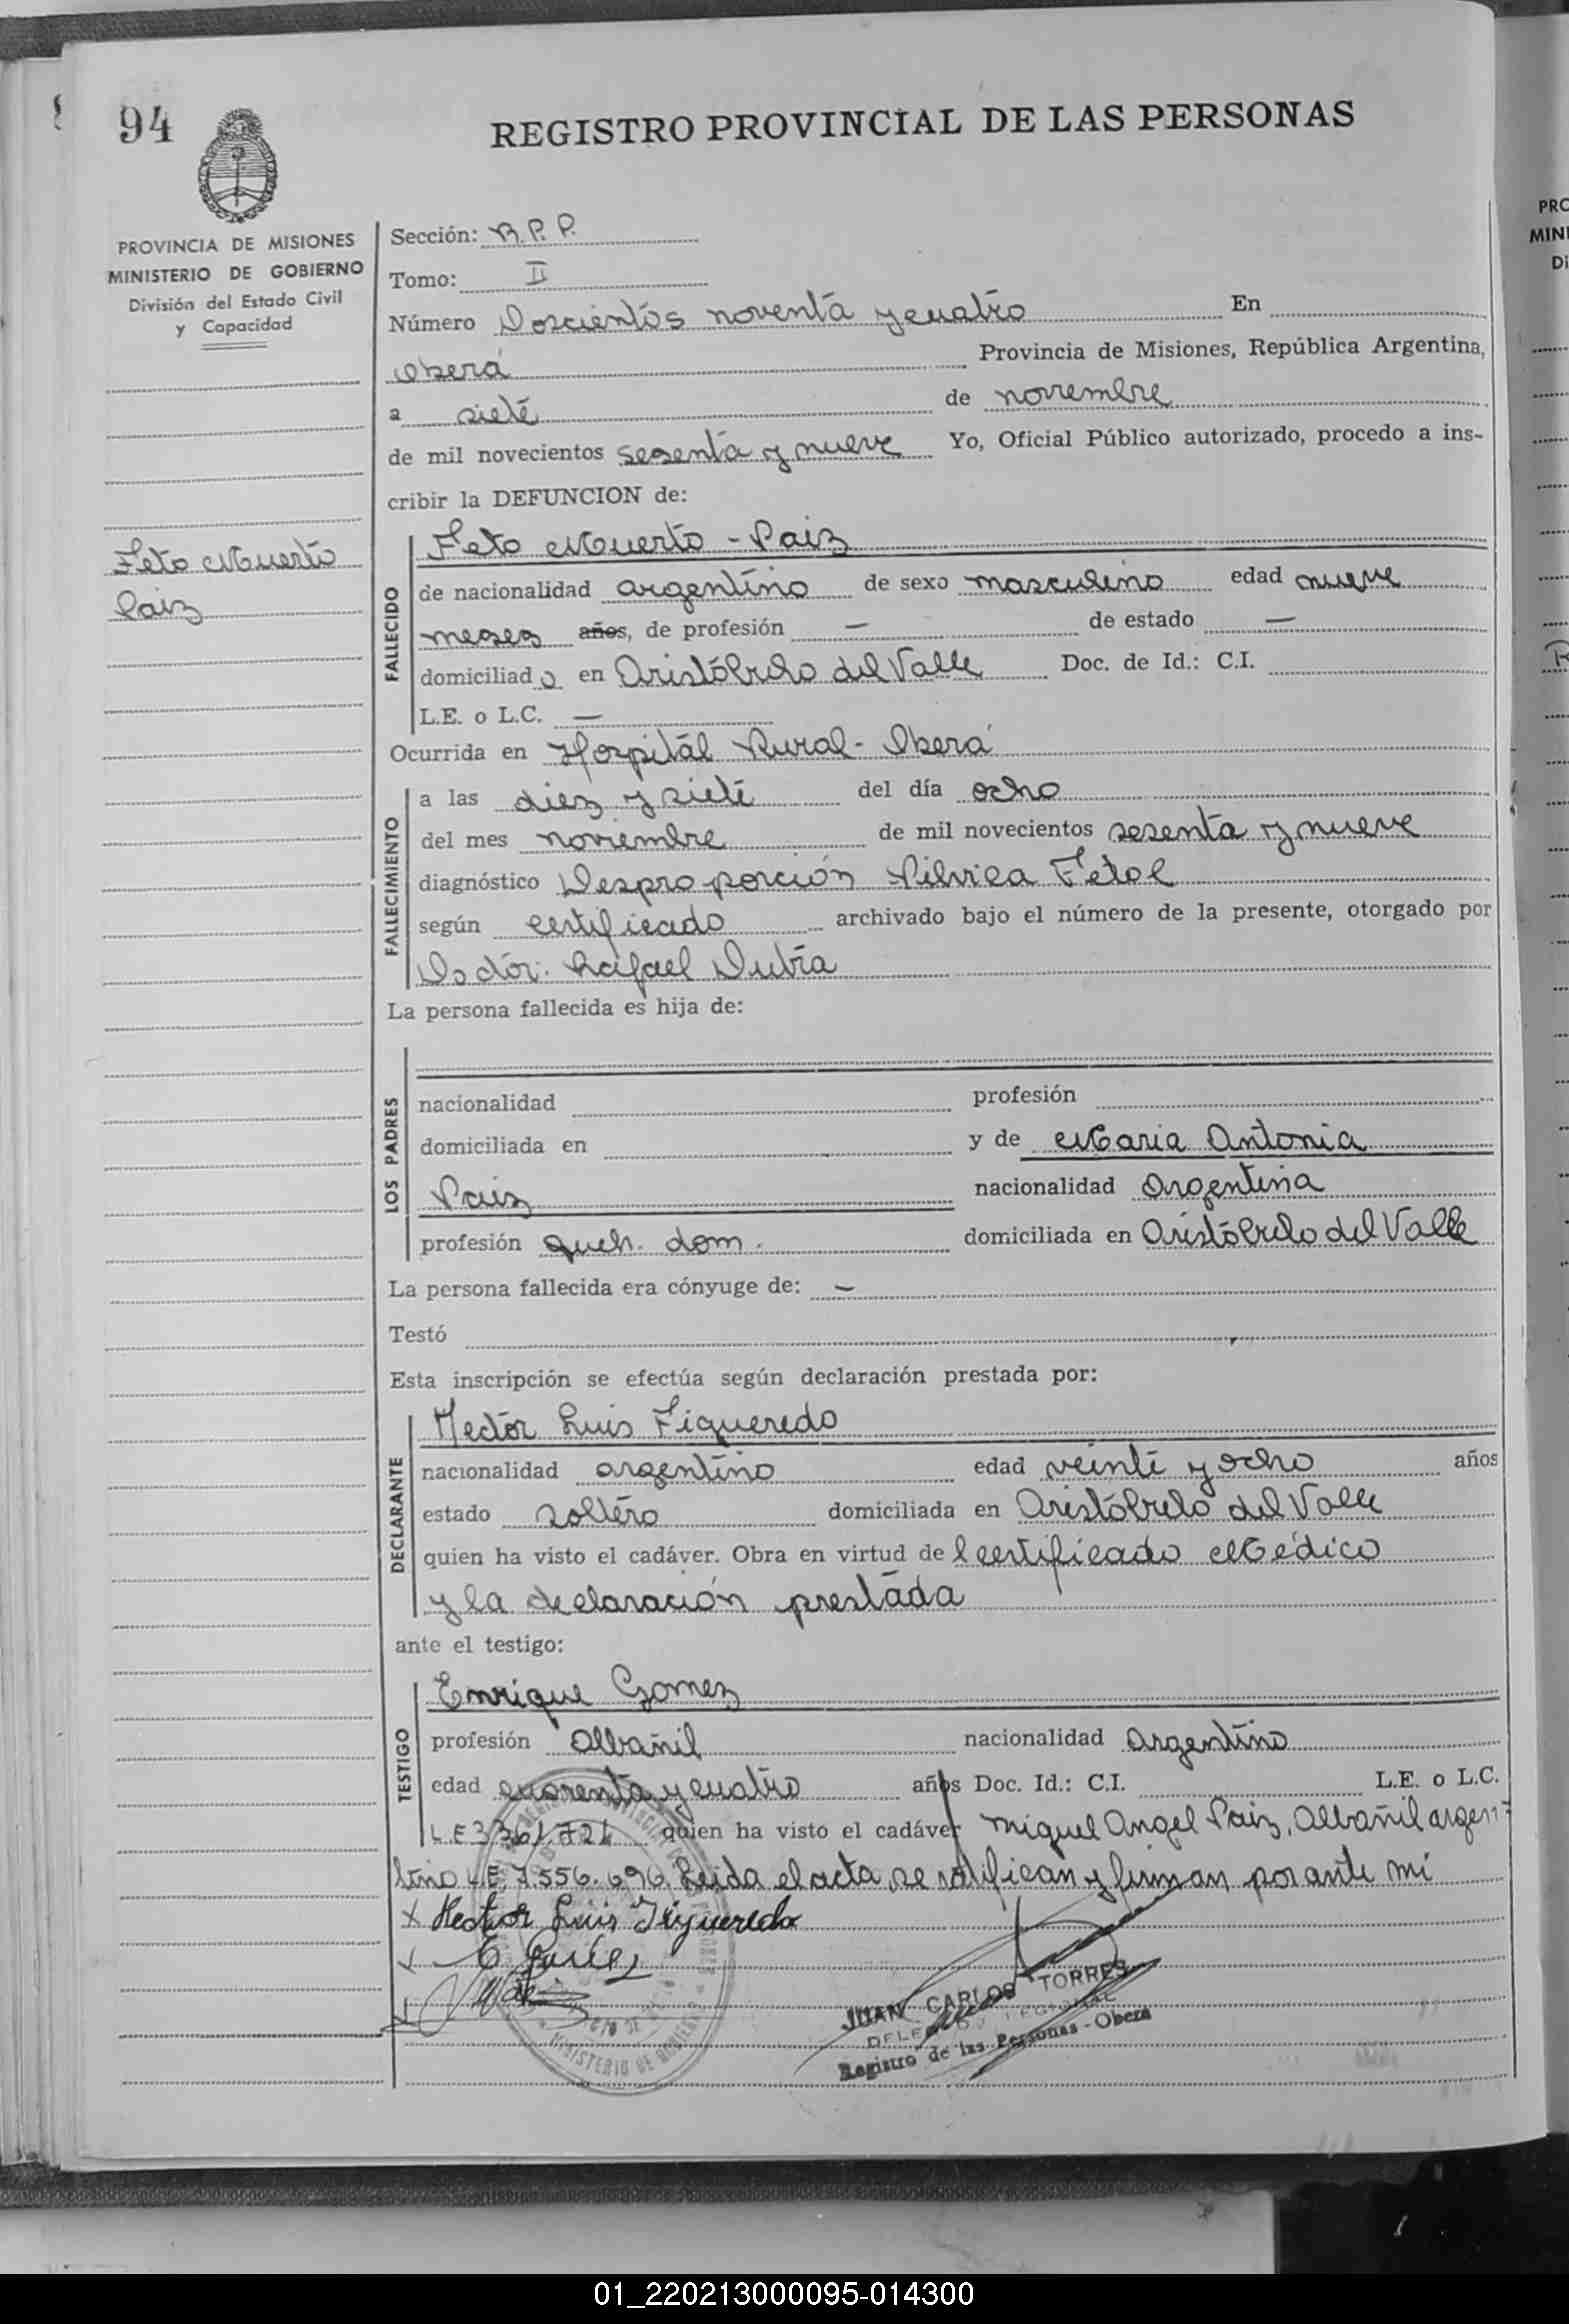 94
REGISTRO PROVINCIAL DE LAS PERSONAS
PROVINCIA DE MISIONES
MINISTERIO DE GOBIERNO
División del Estado Civil
y Capacidad
Sección: R.P.P.
Tomo: II
Número Doscientos noventa y cuatro En
Oberá Provincia de Misiones, República Argentina,
a siete de noviembre
de mil novecientos sesenta y nueve Yo, Oficial Público autorizado, procedo a ins-
cribir la DEFUNCION de:
Feto Muerto
Paiz
FALLECIDO
Feto Muerto - Paiz
de nacionalidad argentino de sexo masculino edad nueve
meses años, de profesión — de estado —
domiciliado en Aristóbulo del Valle Doc. de Id.: C.I.
L.E. o L.C. —
Ocurrida en Hospital Rural - Oberá
FALLECIMIENTO
a las diez y siete del día ocho
del mes noviembre de mil novecientos sesenta y nueve
diagnóstico Desproporción Pilvica Fetal
según certificado archivado bajo el número de la presente, otorgado por
Doctor: Rafael Dutra
La persona fallecida es hija de:
LOS PADRES
nacionalidad profesión
domiciliada en y de Maria Antonia
Paiz nacionalidad Argentina
profesión queh. dom. domiciliada en Aristóbulo del Valle
La persona fallecida era cónyuge de: —
Testó
Esta inscripción se efectúa según declaración prestada por:
DECLARANTE
Hector Luis Figueredo
nacionalidad argentino edad veinte y ocho años
estado soltero domiciliada en Aristóbulo del Valle
quien ha visto el cadáver. Obra en virtud de l certificado Médico
y la declaración prestada
ante el testigo:
TESTIGO
Enrique Gomez
profesión Albañil nacionalidad Argentino
edad cuarenta y cuatro años Doc. Id.: C.I. L.E. o L.C.
L.E quien ha visto el cadáver Miguel Angel Paiz, Albañil argen
tino L.E. 7.556.696. Leida el acta, se ratifican y firman por ante mi
x Hector Luis Figueredo
x
x
JUAN CARLOS TORRES
DELEGADO REGIONAL
Registro de las Personas - Obera
MINISTERIO DE GOBIERNO
PRO
MINI
Di
01_220213000095-014300